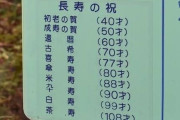 長寿の祝
初老の賀 (40才)
の賀 (50才)
還暦 (60才)
古希 (70才)
喜寿 (77才)
傘寿 (80才)
米寿 (88才)
卆寿 (90才)
白寿 (99才)
茶寿 (108才)